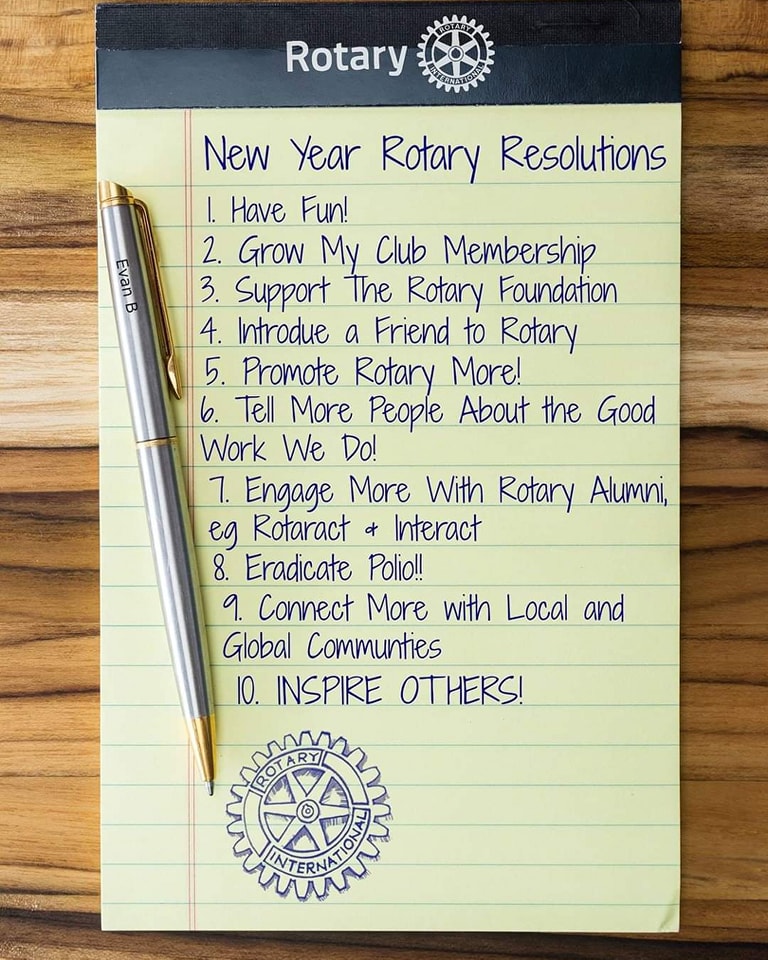 Rotary
ROTARY
INTERNATIONAL
New Year Rotary Resolutions
1. Have Fun!
2. Grow My Club Membership
3. Support The Rotary Foundation
4. Introdue a Friend to Rotary
5. Promote Rotary More!
6. Tell More People About the Good
Work We Do!
7. Engage More With Rotary Alumni,
eg Rotaract & Interact
8. Eradicate Polio!!
9. Connect More with Local and
Global Communties
10. INSPIRE OTHERS!
Evan B
ROTARY
INTERNATIONAL